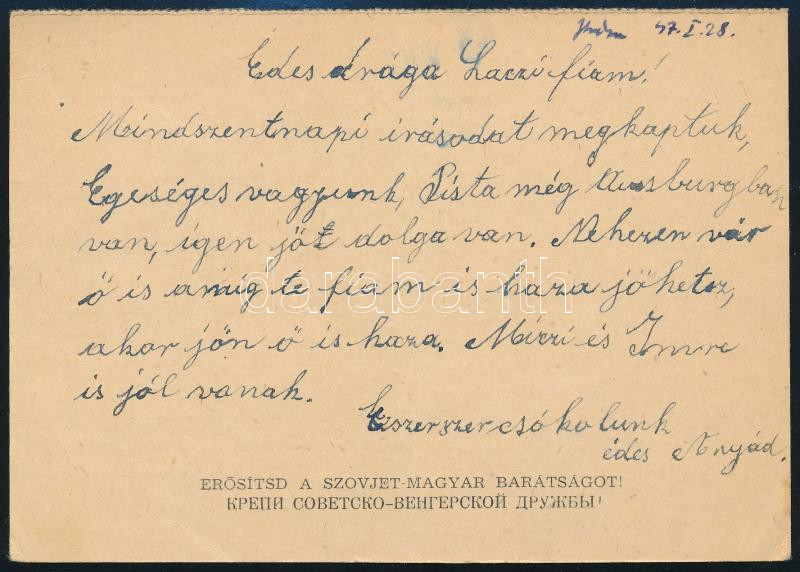 47.I.28.
Édes drága Laczi fiam!
Mindszentnapi irásodat megkaptuk,
Egeséges vagyunk, Pista még Auszburgban
van, igen jó dolga van. Nehezen vár
ő is amig te fiam is haza jöhetsz,
akor jön ő is haza. Miczi és Imre
is jól vanak.
Ezerszer csókolunk
édes Anyád.
ERŐSÍTSD A SZOVJET-MAGYAR BARÁTSÁGOT!
КРЕПИ СОВЕТСКО-ВЕНГЕРСКОЙ ДРУЖБЫ!
darabanth